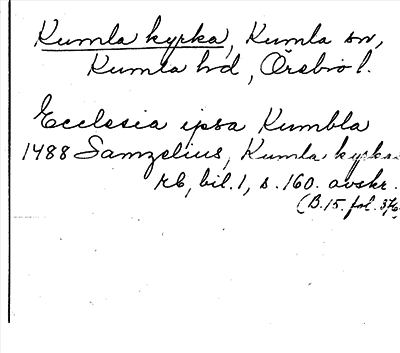 Kumla kyrka, Kumla sn,
Kumla hd, Örebro l.
Ecclesia ipsa Kumbla
1488 Samzelius, Kumla kyrkas
rb, bil. 1, s. 160. avskr.
(B. 15. fol. 376